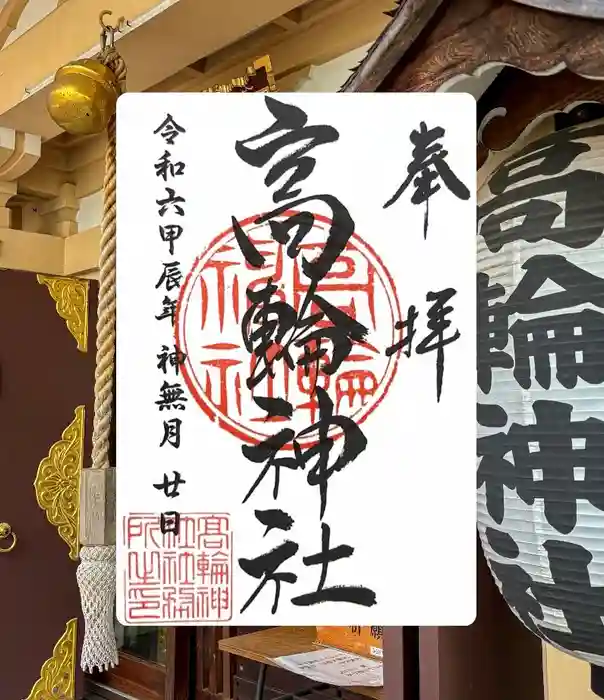 奉拝
高輪神社
令和六甲辰年 神無月 廿日
高輪神社
高輪神
社社務
所之印
高輪神社